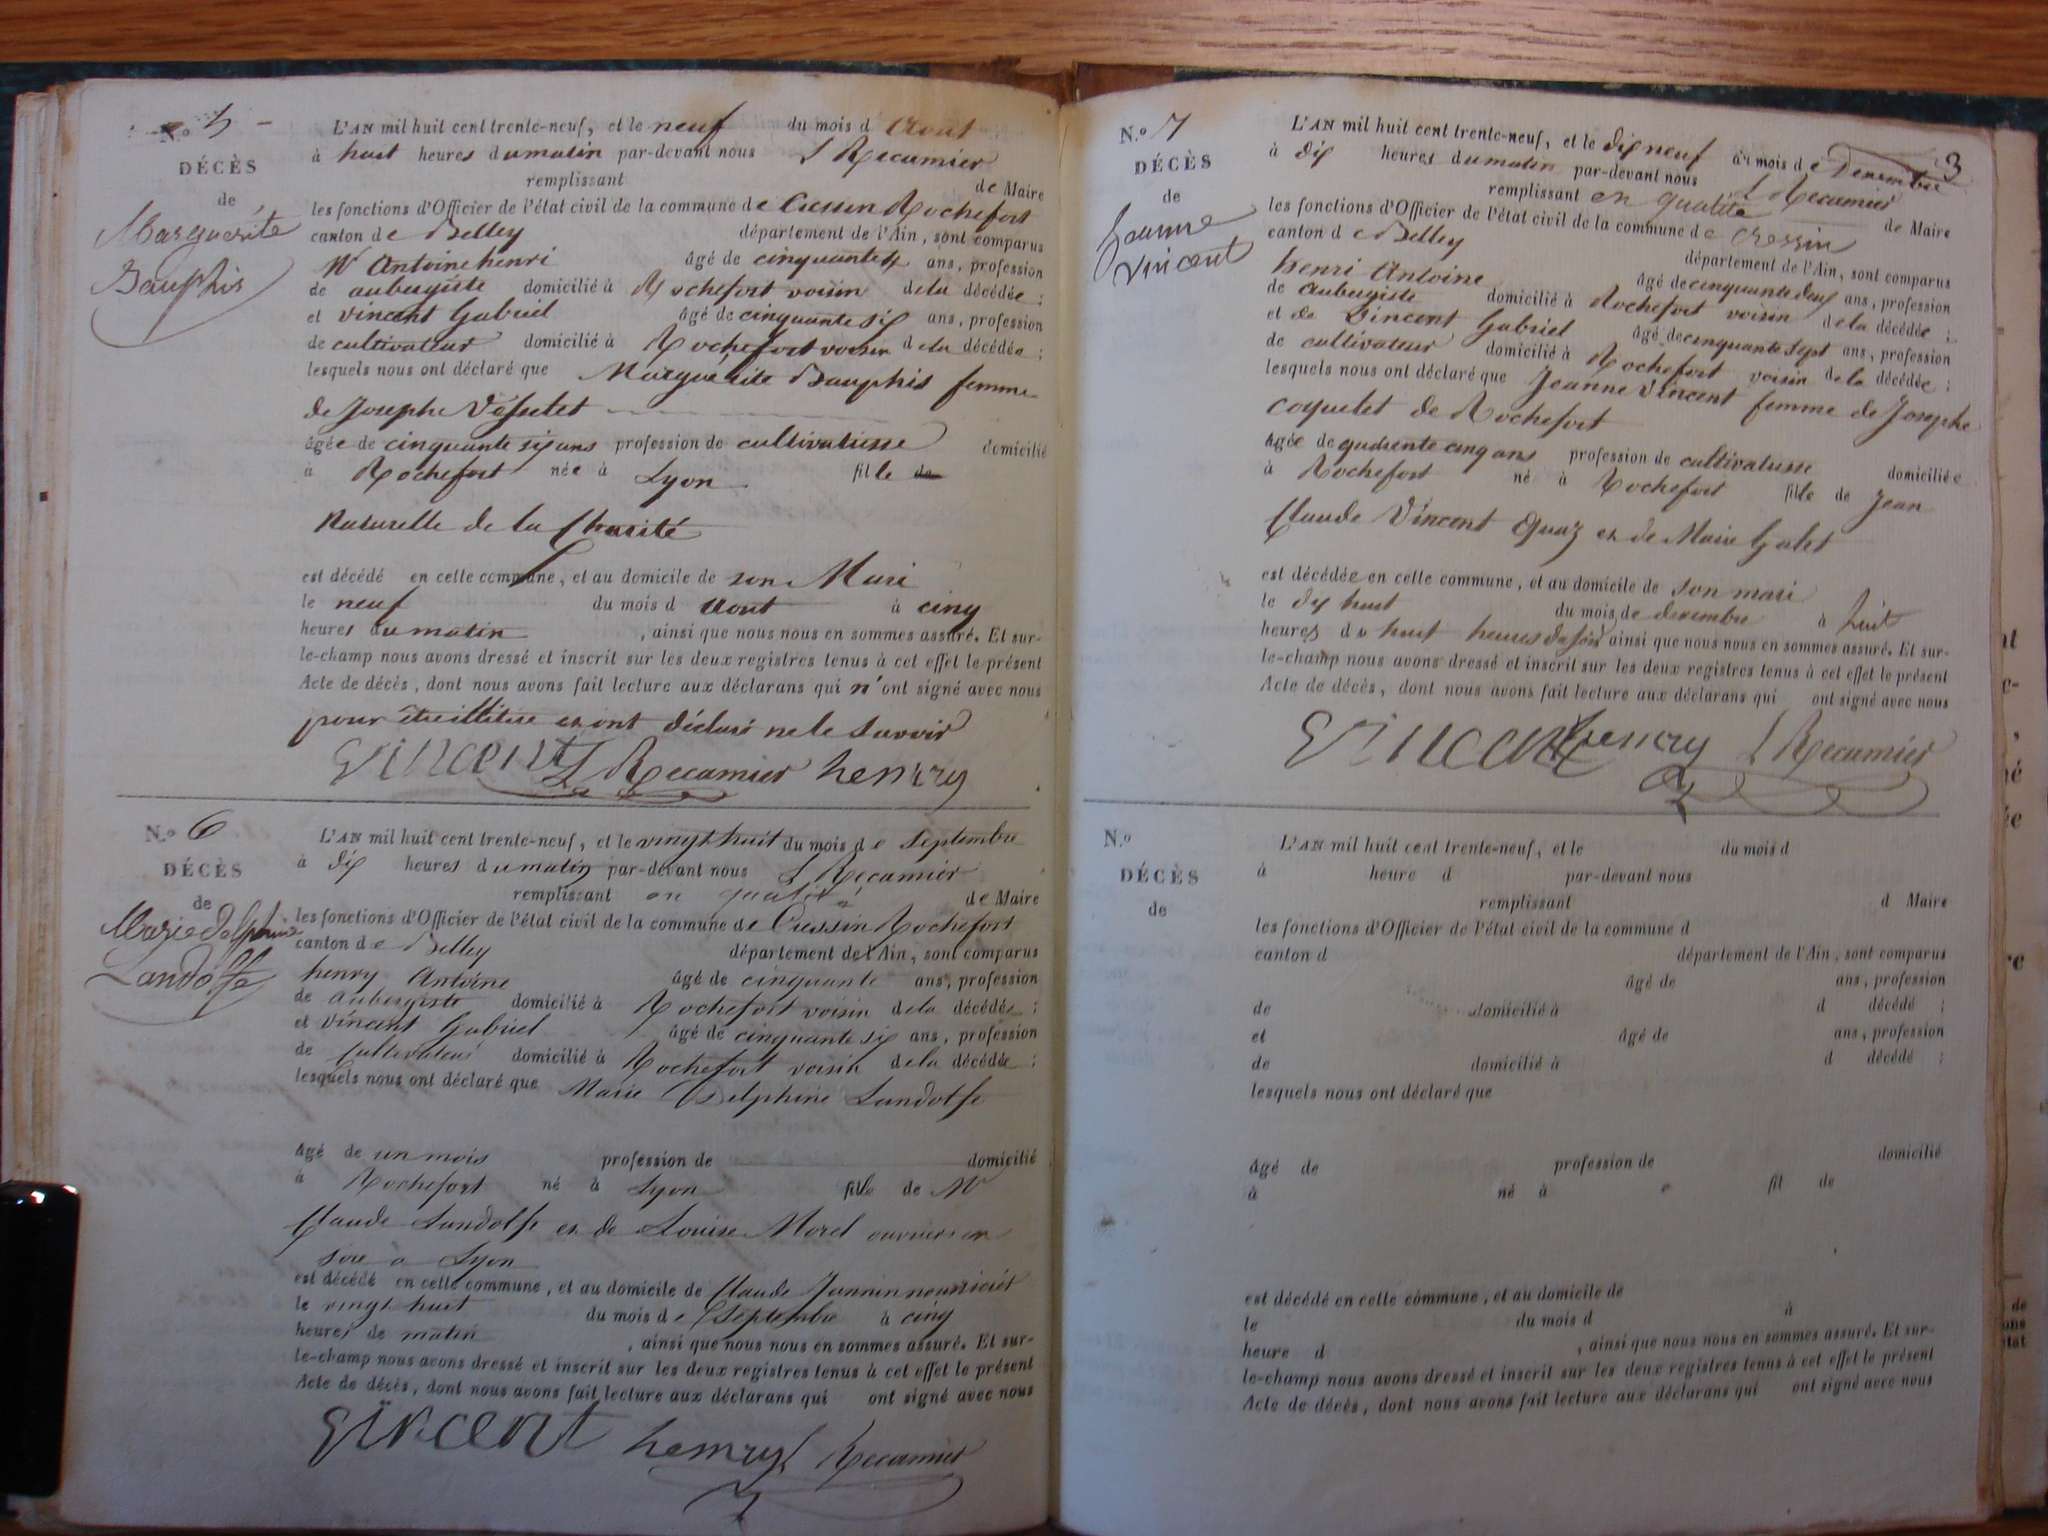 N.o 5
DÉCÈS
de
Marguerite
Dauphis
L'AN mil huit cent trente-neuf, et le neuf du mois d Aout
à huit heures du matin par-devant nous L Recamier
remplissant de Maire
les fonctions d'Officier de l'état civil de la commune de Cressin Rochefort
canton de Belley département de l'Ain, sont comparus
Mr Antoine henri âgé de cinquante ans, profession
de aubergiste domicilié à Rochefort voisin de la décédée ;
et vincent Gabriel âgé de cinquante six ans, profession
de cultivateur domicilié à Rochefort voisin de la décédée ;
lesquels nous ont déclaré que Marguerite Dauphis femme
de Josephe
âgée de cinquante six ans profession de cultivatrisse domicilié
à Rochefort née à Lyon fille de
Naturelle de la Charité
est décédé en cette commune, et au domicile de son Mari
le neuf du mois d Aout à cinq
heures du matin , ainsi que nous nous en sommes assuré. Et sur-
le-champ nous avons dressé et inscrit sur les deux registres tenus à cet effet le présent
Acte de décès, dont nous avons fait lecture aux déclarans qui n'ont signé avec nous
pour être illitire et ont déclaré ne le savoir
Vincent L Recamier henry
N.o 6
DÉCÈS
de
Marie Delphine
Landolfe
L'AN mil huit cent trente-neuf, et le vingt huit du mois de Septembre
à dix heures du matin par-devant nous L Recamier
remplissant en qualité de Maire
les fonctions d'Officier de l'état civil de la commune de Cressin Rochefort
canton de Belley département de l'Ain, sont comparus
henry Antoine âgé de cinquante ans, profession
de aubergiste domicilié à Rochefort voisin de la décédée ;
et vincent Gabriel âgé de cinquante six ans, profession
de Cultivateur domicilié à Rochefort voisin de la décédée ;
lesquels nous ont déclaré que Marie Delphine Landolfe
âgé de un mois profession de domicilié
à Rochefort né à Lyon fille de Mr
Claude Landolfe et de Louise Morel ouvriers en
soie a Lyon
est décédé en cette commune, et au domicile de Claude Jannin nourricier
le vingt huit du mois de Septembre à cinq
heures de matin , ainsi que nous nous en sommes assuré. Et sur-
le-champ nous avons dressé et inscrit sur les deux registres tenus à cet effet le présent
Acte de décès, dont nous avons fait lecture aux déclarans qui ont signé avec nous
Vincent henry L Recamier
3
N.o 7
DÉCÈS
de
Jeanne
Vincent
L'AN mil huit cent trente-neuf, et le dix neuf du mois de Decembre
à dix heures du matin par-devant nous L Recamier
remplissant en qualité de Maire
les fonctions d'Officier de l'état civil de la commune de Cressin
canton de Belley département de l'Ain, sont comparus
henri Antoine âgé de cinquante deux ans, profession
de Aubergiste domicilié à Rochefort voisin de la décédée ;
et de Vincent Gabriel âgé de cinquante sept ans, profession
de cultivateur domicilié à Rochefort voisin de la décédée ;
lesquels nous ont déclaré que Jeanne Vincent femme de Josephe
Coquelet de Rochefort
Agée de quarente cinq ans profession de cultivatrisse domiciliée
à Rochefort né à Rochefort fille de Jean
Claude Vincent et de Marie Galet
est décédée en cette commune, et au domicile de son mari
le dix huit du mois de decembre à huit
heures du huit heures du soir ainsi que nous nous en sommes assuré. Et sur-
le-champ nous avons dressé et inscrit sur les deux registres tenus à cet effet le présent
Acte de décès, dont nous avons fait lecture aux déclarans qui ont signé avec nous
Vincent henry L Recamier
N.o
DÉCÈS
de
L'AN mil huit cent trente-neuf, et le du mois d
à heure d par-devant nous
remplissant d Maire
les fonctions d'Officier de l'état civil de la commune d
canton d département de l'Ain, sont comparus
âgé de ans, profession
de domicilié à d décédé ;
et âgé de ans, profession
de domicilié à d décédé ;
lesquels nous ont déclaré que
âgé de profession de domicilié
à né à fil de
est décédé en cette commune, et au domicile de
le du mois d à
heure d , ainsi que nous nous en sommes assuré. Et sur-
le-champ nous avons dressé et inscrit sur les deux registres tenus à cet effet le présent
Acte de décès, dont nous avons fait lecture aux déclarans qui ont signé avec nous